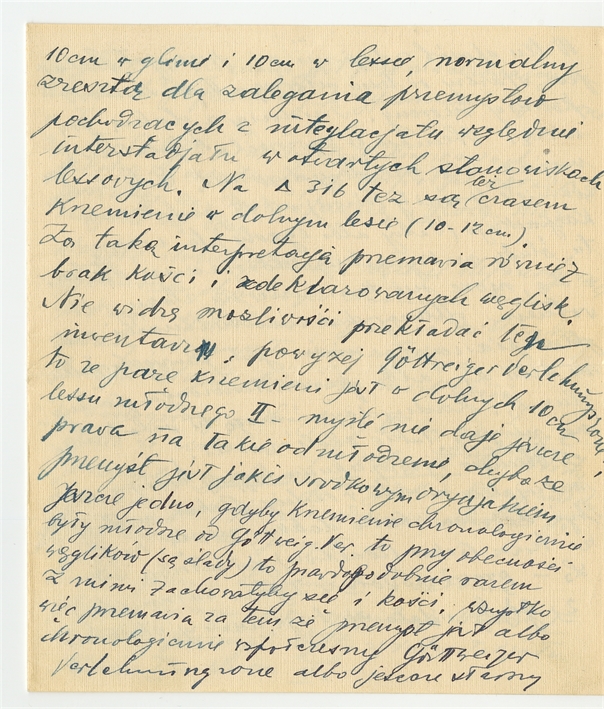 10cm w glinie i 10cm w lessie, normalny
zresztą dla zalegania przemysłów
pochodzących z interglacjału względnie
interstadjału w otwartych stanowiskach
lessowych. Na Δ 316 też są też czasem
Krzemienie w dolnym lesie (10-12cm).
Za taką interpretacją przemawia również
brak kości i zdeklarowanych węglisk.
Nie widzę możliwości przekładać tego
inwentarza powyżej Göttweiger Verlehmungszone,
to że parę krzemieni jest w dolnych 10cm
lessu młodszego II - myślę nie daje jeszcze
prawa na takie odmłodzenie, chyba że
przemysł jest jakiś środkowym oryniakiem
Jeszcze jedno, gdyby krzemienie chronologicznie
były młodsze od Göttweig. Ver. to przy obecności
węglików (są ślady) to prawdopodobnie razem
z nimi zachowałyby się i kości. Wszystko
więc przemawia za tem że przemysł jest albo
chronologicznie współczesny Göttweiger
Verlehmungzone albo jeszcze starszy